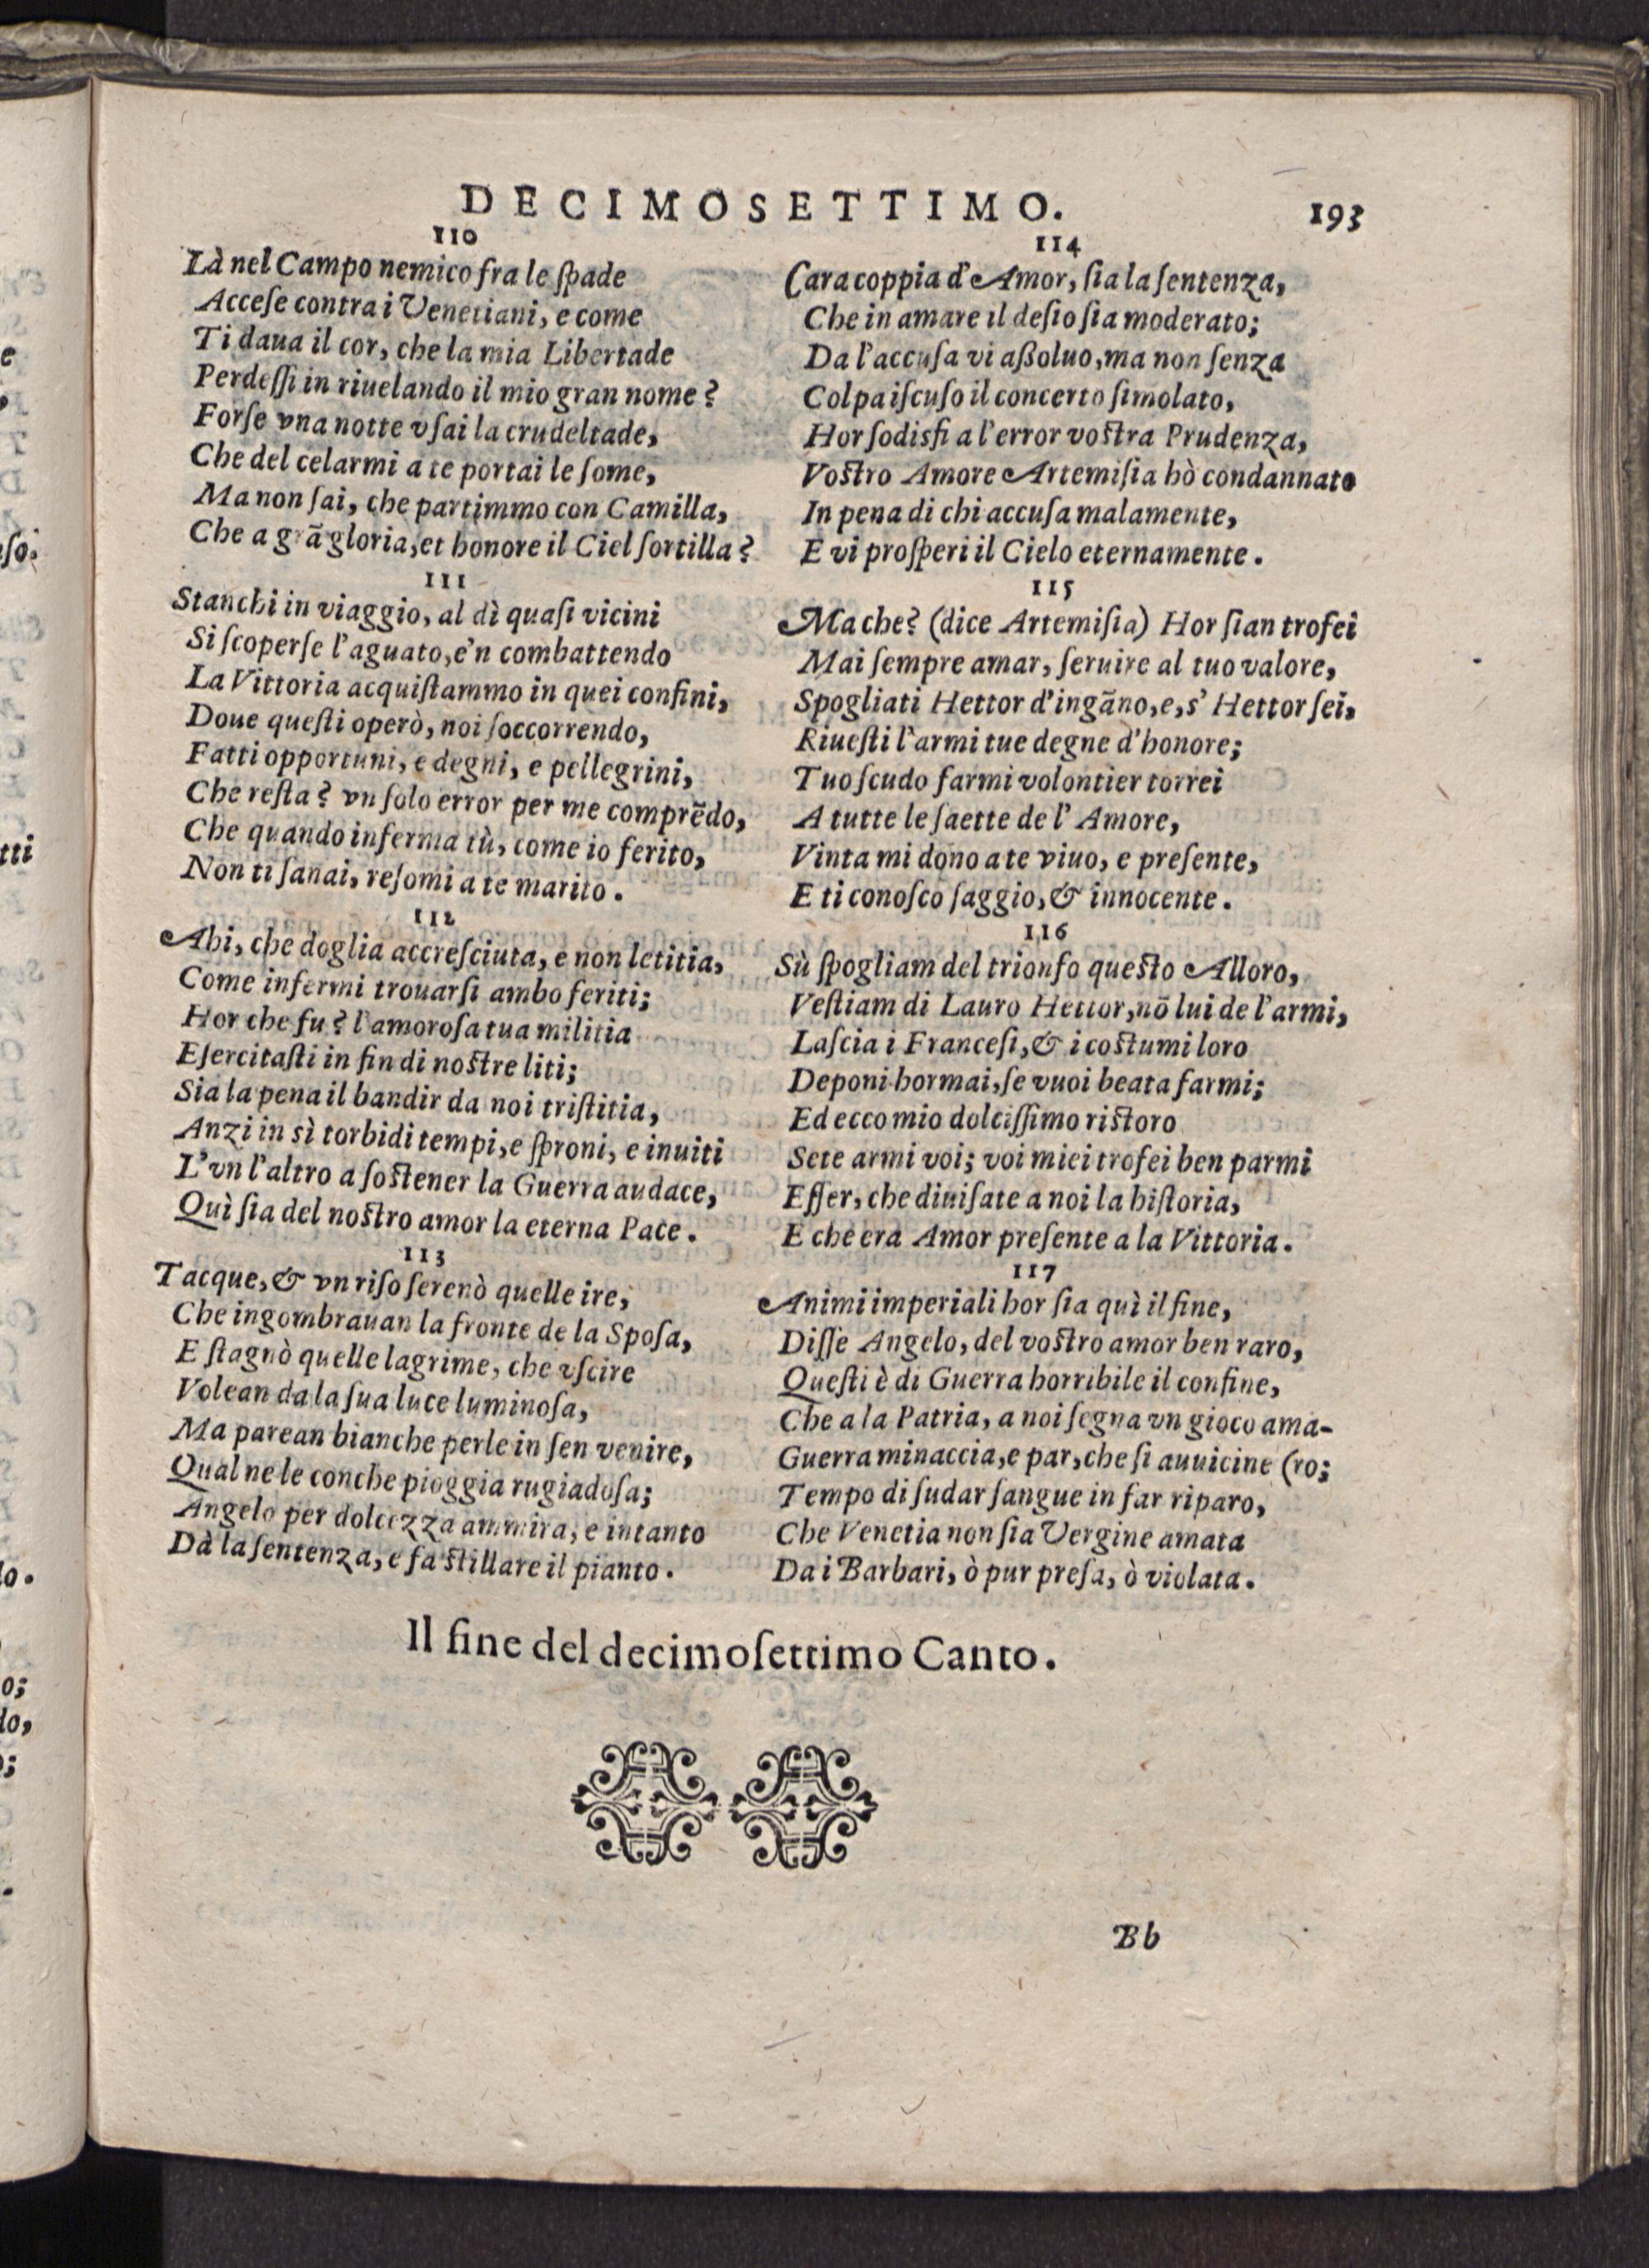 DECIMOSETTIMO. 193
110
Là nel Campo nemico fra le ſpade
Acceſe contra i Venetiani, e come
Ti daua il cor, che la mia Libertade
Perdeſſi in riuelando il mio gran nome?
Forſe vna notte vſai la crudeltade,
Che del celarmi a te portai le ſome,
Ma non ſai, che partimmo con Camilla,
Che a grã gloria, et honore il Ciel ſortilla?
111
Stanchi in viaggio, al dì quaſi vicini
Si ſcoperſe l'aguato, e'n combattendo
La Vittoria acquiſtammo in quei confini,
Doue queſti operò, noi ſoccorrendo,
Fatti opportuni, e degni, e pellegrini,
Che reſta? vn ſolo error per me comprẽdo,
Che quando inferma tù, come io ferito,
Non ti ſanai, reſomi a te marito.
112
Ahi, che doglia accreſciuta, e non letitia,
Come infermi trouarſi ambo feriti;
Hor che fu? l'amoroſa tua militia
Eſercitaſti in fin di noſtre liti;
Sia la pena il bandir da noi triſtitia,
Anzi in sì torbidi tempi, e ſproni, e inuiti
L'vn l'altro a ſoſtener la Guerra audace,
Quì ſia del noſtro amor la eterna Pace.
113
Tacque, & vn riſo ſerenò quelle ire,
Che ingombrauan la fronte de la Spoſa,
E ſtagnò quelle lagrime, che vſcire
Volean da la ſua luce luminoſa,
Ma parean bianche perle in ſen venire,
Qual ne le conche pioggia rugiadoſa;
Angelo per dolcezza ammira, e intanto
Dà la ſentenza, e fa ſtillare il pianto.
114
Cara coppia d'Amor, ſia la ſentenza,
Che in amare il deſio ſia moderato;
Da l'accuſa vi aßoluo, ma non ſenza
Colpa iſcuſo il concerto ſimolato,
Hor ſodisfi a l'error voſtra Prudenza,
Voſtro Amore Artemiſia hò condannato
In pena di chi accuſa malamente,
E vi proſperi il Cielo eternamente.
115
Ma che? (dice Artemiſia) Hor ſian trofei
Mai ſempre amar, ſeruire al tuo valore,
Spogliati Hettor d'ingãno, e, s' Hettor ſei,
Riueſti l'armi tue degne d'honore;
Tuo ſcudo farmi volontier torrei
A tutte le ſaette de l'Amore,
Vinta mi dono a te viuo, e preſente,
E ti conoſco ſaggio, & innocente.
116
Sù ſpogliam del trionfo queſto Alloro,
Veſtiam di Lauro Hettor, nõ lui de l'armi,
Laſcia i Franceſi, & i coſtumi loro
Deponi hormai, ſe vuoi beata farmi;
Ed ecco mio dolciſſimo riſtoro
Sete armi voi; voi miei trofei ben parmi
Eſſer, che diuiſate a noi la hiſtoria,
E che era Amor preſente a la Vittoria.
117
Animi imperiali hor ſia quì il fine,
Diſſe Angelo, del voſtro amor ben raro,
Queſti è di Guerra horribile il confine,
Che a la Patria, a noi ſegna vn gioco ama-
Guerra minaccia, e par, che ſi auuicine (ro;
Tempo di ſudar ſangue in far riparo,
Che Venetia non ſia Vergine amata
Da i Barbari, ò pur preſa, ò violata.
Il fine del decimoſettimo Canto.
Bb